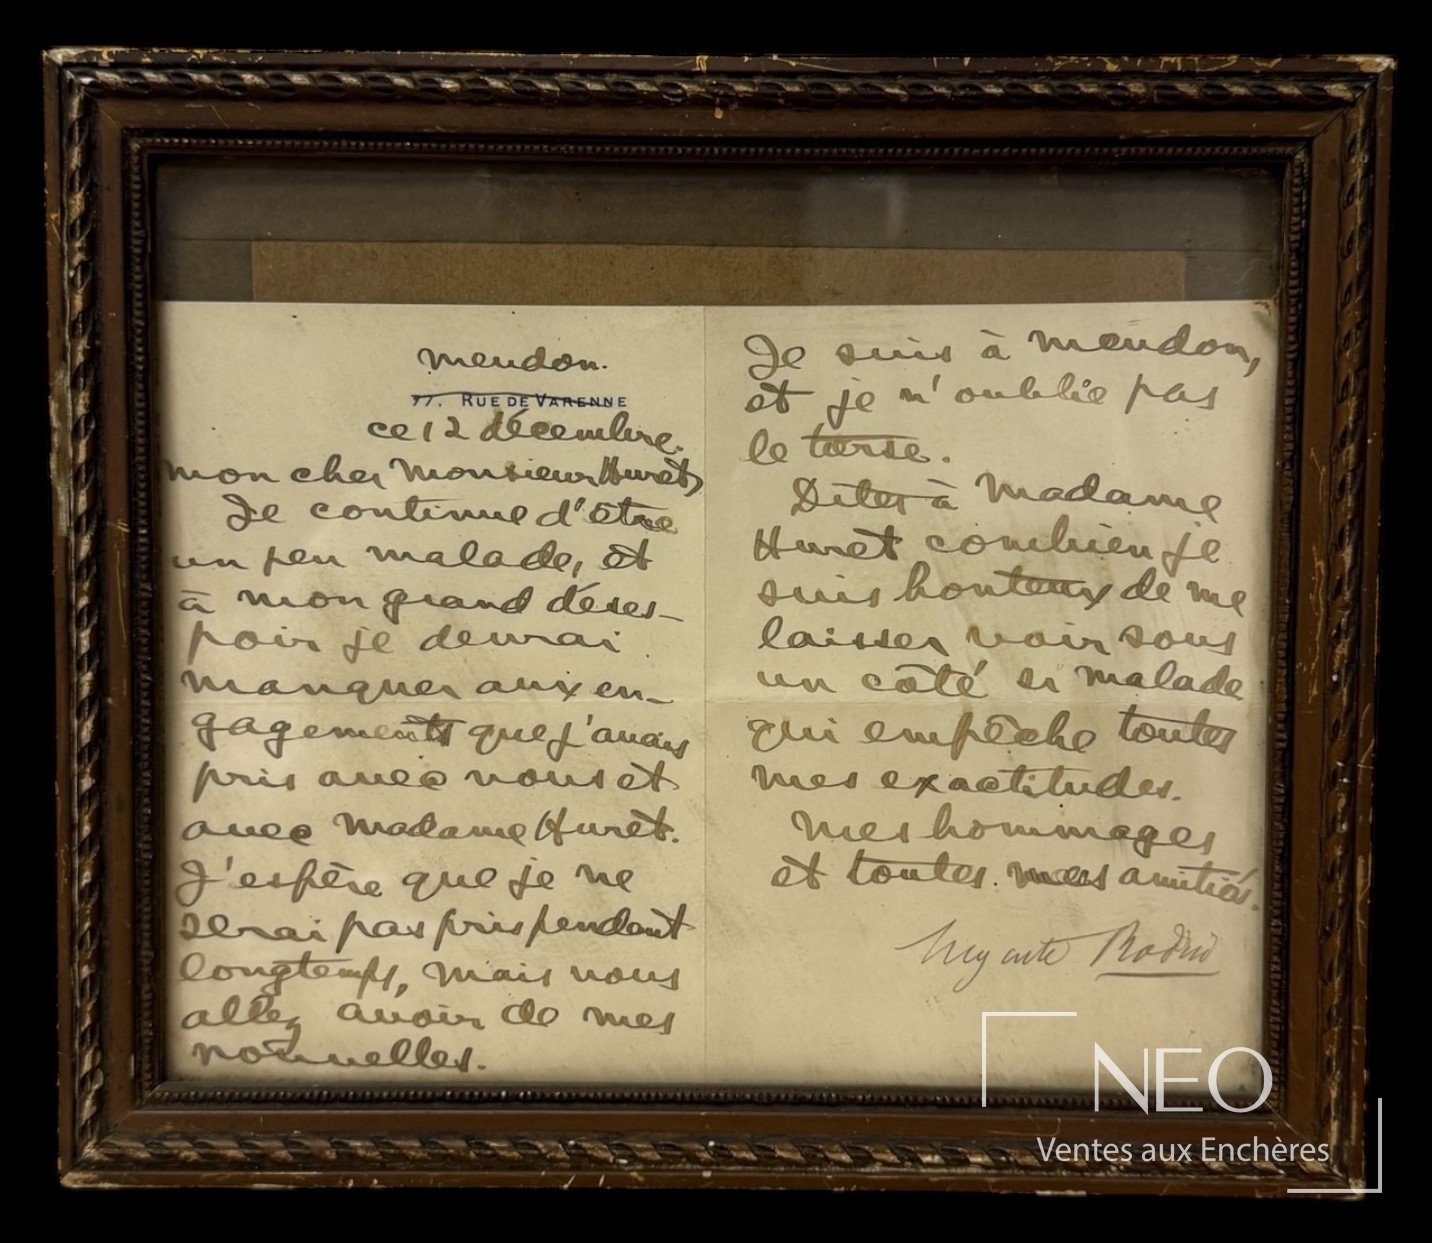 Meudon.
77. RUE DE VARENNE
ce 12 décembre.
Mon cher Monsieur Huret,
Je continue d'être
un peu malade, et
à mon grand déses-
poir je devrai
manquer aux en-
gagements que j'avais
pris avec vous et
avec Madame Huret.
J'espère que je ne
serai pas pris pendant
longtemps, mais vous
allez avoir de mes
nouvelles.
Je suis à Meudon,
et je n'oublie pas
le torse.
Dites à Madame
Huret combien je
suis honteux de me
laisser voir sous
un côté si malade
qui empêche toutes
mes exactitudes.
Mes hommages
et toutes mes amitiés.
Auguste Rodin
NEO
Ventes aux Enchères